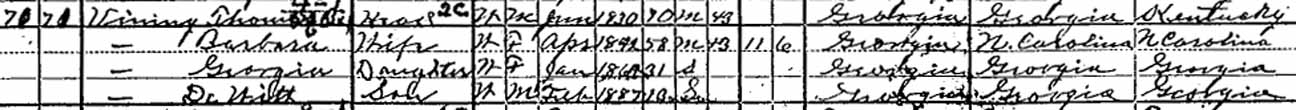 70 70 Vining Thomas Head 2C W M Jun 1830 70 M 43 Georgia Georgia Kentucky
— Barbara Wife W F Apr 1842 58 M 43 11 6 Georgia N. Carolina N Carolina
— Georgia Daughter W F Jan 1869 31 S Georgia Georgia Georgia
— De Witt Son W M Feb 1887 13 S Georgia Georgia Georgia